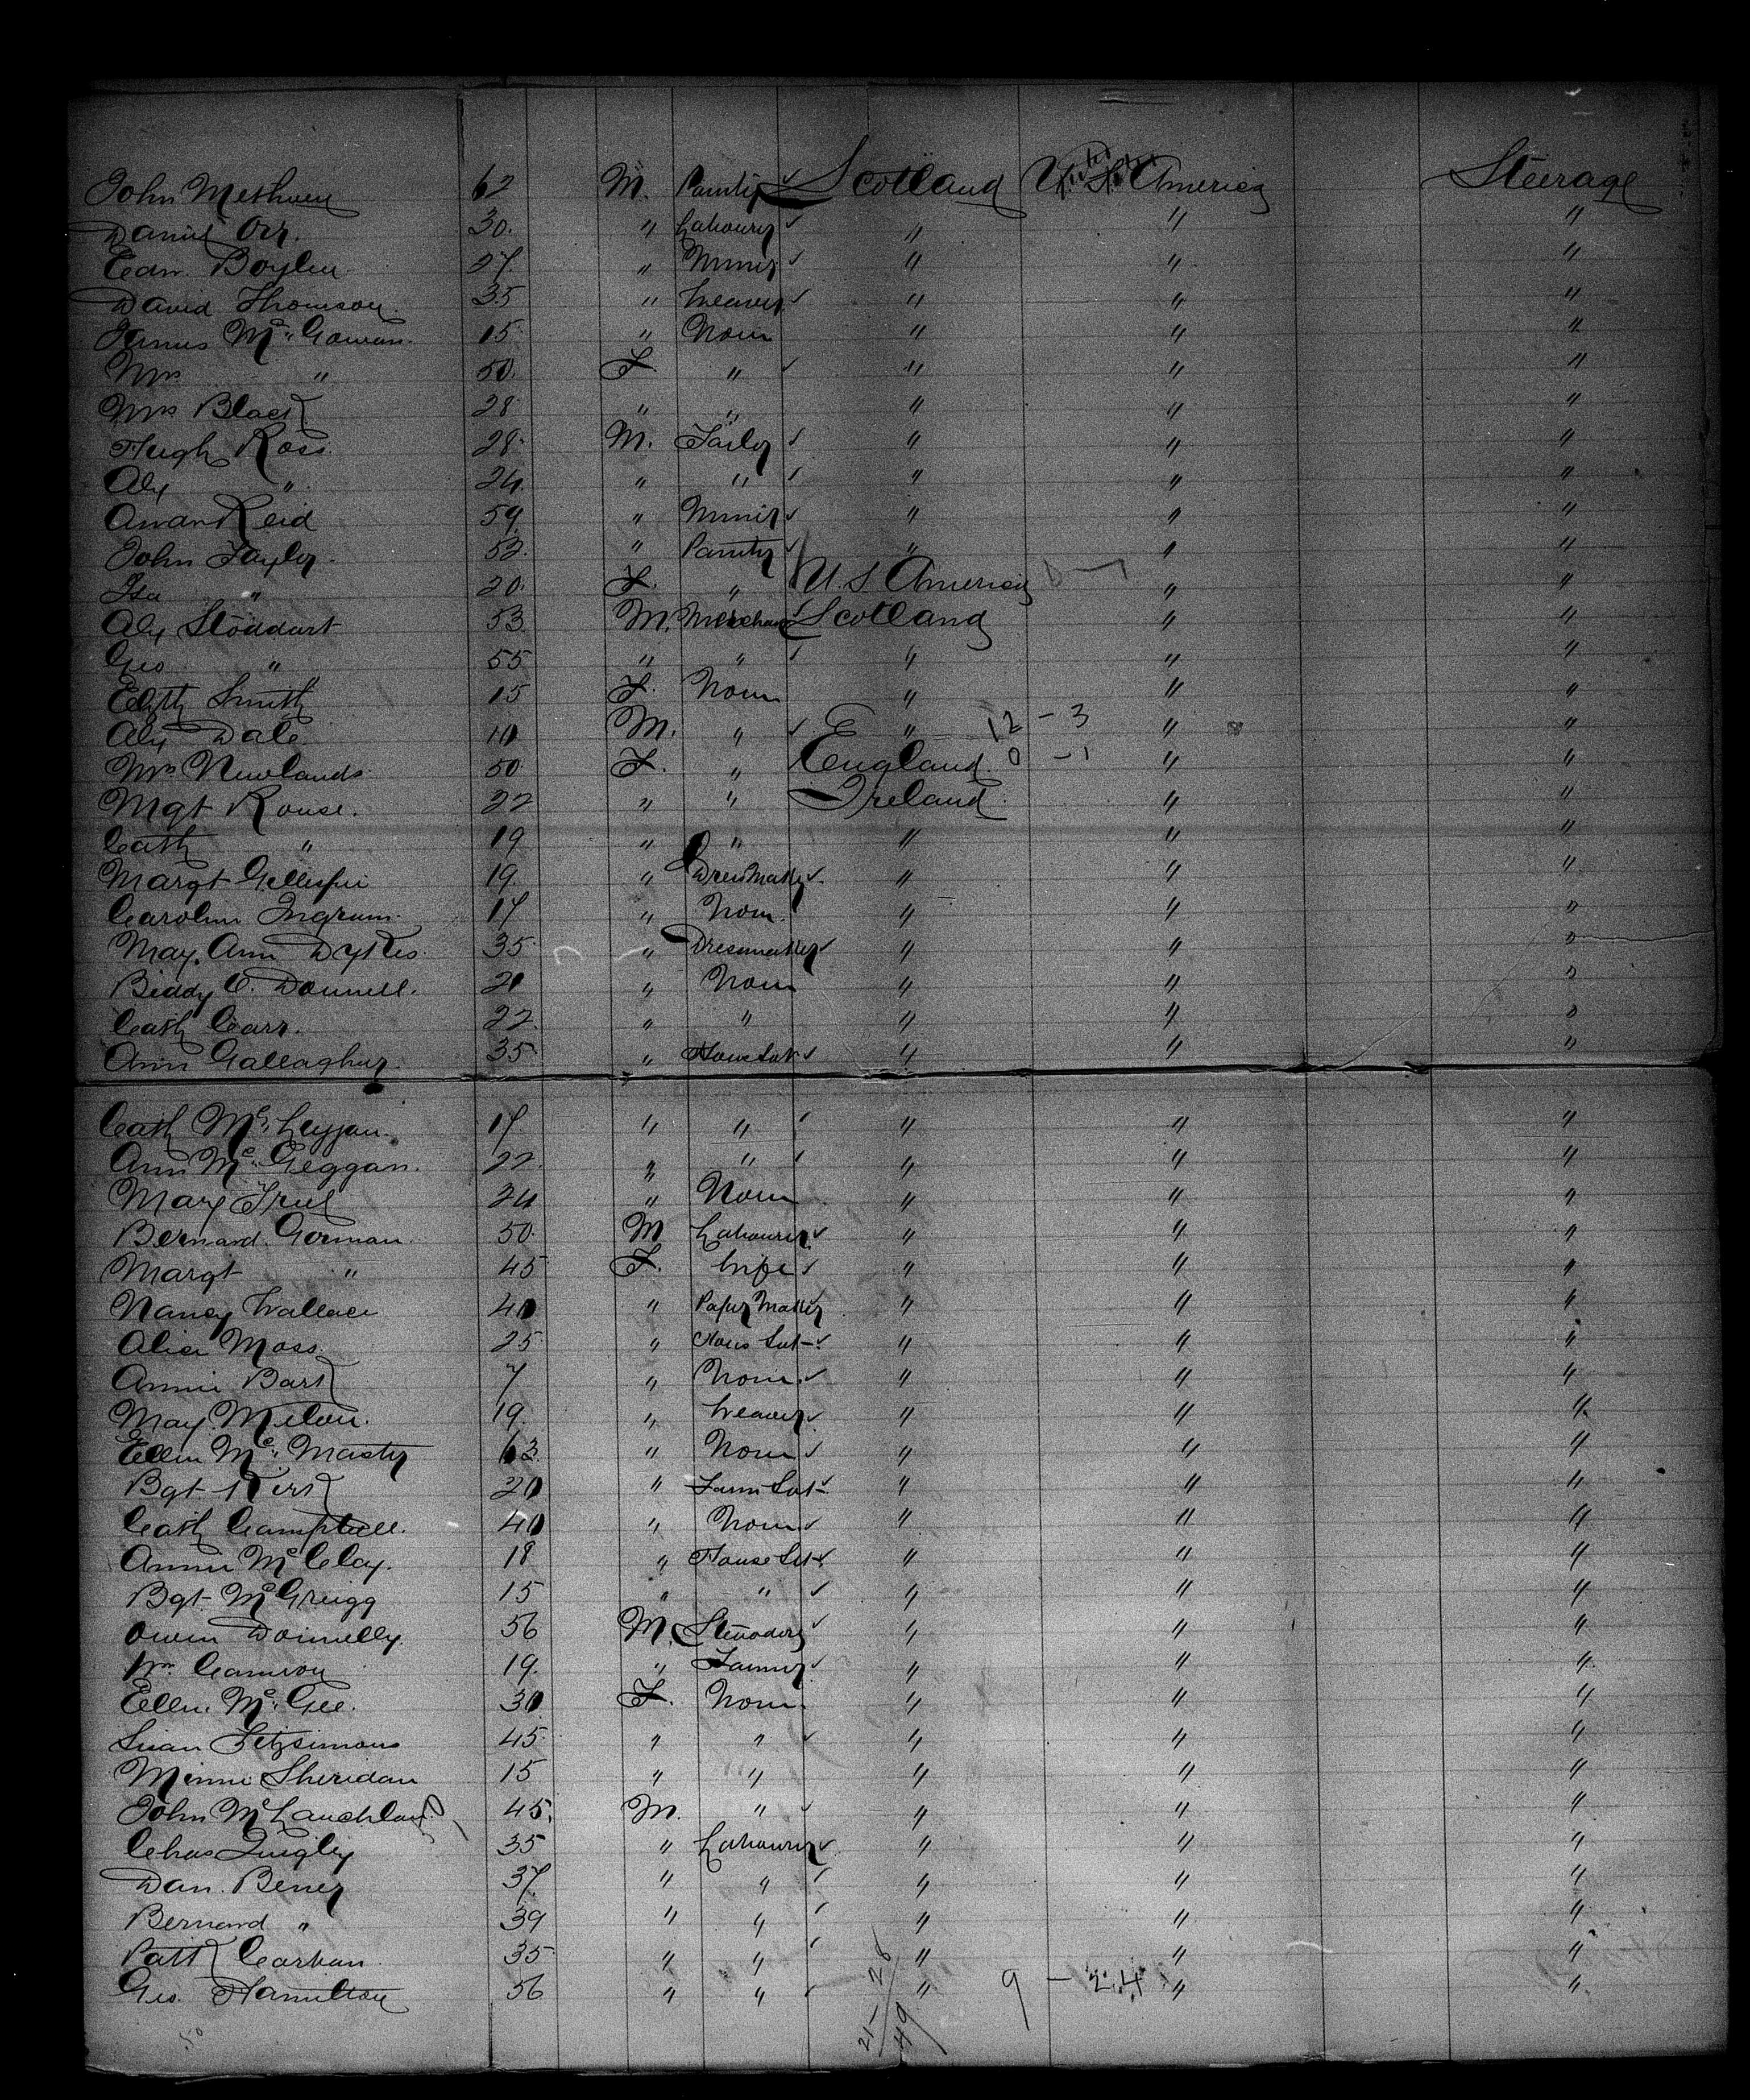 John Methven 62 M. Painter ✓ Scotland U.S. America Steerage
Daniel Orr. 30. " Labourer ✓ " " "
Edw. Boylen 27. " Miner ✓ " " "
David Thomson. 35 " Weaver ✓ " " "
James Mc Gowan. 15 " None " " "
Mrs " 50. F " ✓ " " "
Mrs Black 28 " " " " "
Hugh Ross. 28. M. Tailor ✓ " " "
Alex " 24. " " ✓ " " "
Reid 59. " Miner ✓ " " "
John Taylor. 52. " Painter ✓ " " "
Isa " 20. F. " U.S America " "
Alex Stoddart 53 M. Merchant Scotland " "
Geo " 55 " " ✓ " " "
Elizth Smith 15 F. None " " "
Alex Dale 10 M. " ✓ " 12 - 3 " "
Mrs Newlands 50 F. " England. 0 - 1 " "
Mgt Rouse. 22 " " Ireland. " "
Cath " 19 " " " " "
Margt Gillespie 19. " Dressmaker ✓ " " "
Caroline Ingram. 17 " None. " " "
Mary Ann Dykes. 35 " Dressmaker ✓ " " "
Biddy O. Donnell. 21 " None " " "
Cath Carr. 22. " " " " "
Ann Gallagher. 35 " House Svt ✓ " " "
Cath Mc 17 " " ✓ " " "
Ann Mc Geggan. 22. " " ✓ " " "
Mary Friel 24 " None " " "
Bernard Gorman. 50. M Labourer. ✓ " " "
Margt " 45 F. Wife ✓ " " "
Nancy Wallace 40 " Paper Maker " " "
Alice Moss. 25 " House Svt ✓ " " "
Annie Bark 7 " None ✓ " " "
May. 19. " Weaver ✓ " " "
Ellen Mc Master 63 " None ✓ " " "
Bgt Kirk 20 " Farm Svt ✓ " " "
Cath Campbell. 40 " None ✓ " " "
Annie Mc Clay. 18 " House Svt ✓ " " "
Bgt Mc Greigg 15 " " ✓ " " "
Owen Donnelly. 56 M. Stevedore ✓ " " "
Wm Cameron 19. " Farmer ✓ " " "
Ellen Mc Gee. 30 F. None. " " "
Susan Fitzsimons 45 " " ✓ " " "
Minnie Sheridan 15 " " " " "
John Mc Lauchlan 45. M. " ✓ " " "
Chas Quigley 35 " Labourer ✓ " " "
Dan. Bener 37. " " ✓ " " "
Bernard " 39 " " ✓ " " "
Patk 35 " " ✓ " " "
Geo. Hamilton 56 " " ✓ " 9 - 24 " "
50 21 28 49